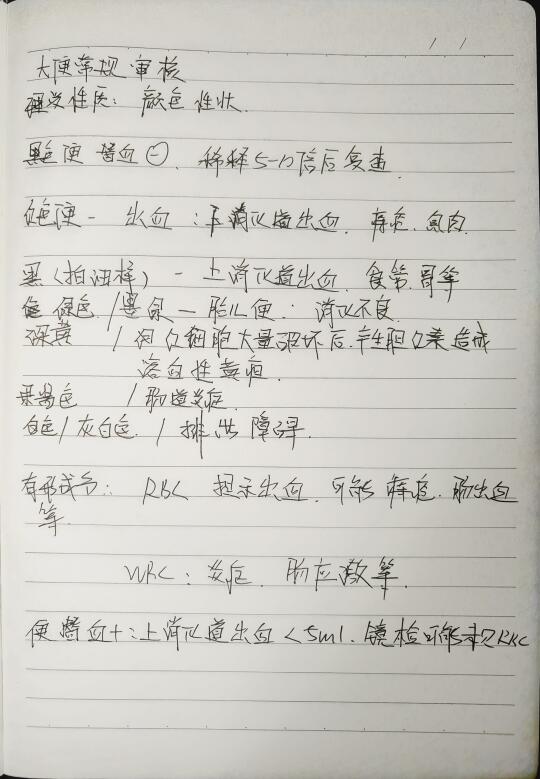 大便常规审核
理学性质：颜色 性状
黑色便 潜血⊖. 稀释5-10倍后复查.
红色便 - 出血：下消化道出血. 痔疮. 息肉.
黑（柏油样）- 上消化道出血. 食管. 胃等
绿色 / 墨绿 — 胎儿便. 消化不良
深黄 / 红细胞大量破坏后产生胆红素造成
溶血性黄疸.
黄褐色 / 肠道炎症.
白色/灰白色. / 排出障碍.
有形成分: RBC 提示出血. 可能 痔疮. 肠出血
等.
WBC: 炎症. 肠应激等.
便潜血+: 上消化道出血<5ml. 镜检可能未见RBC